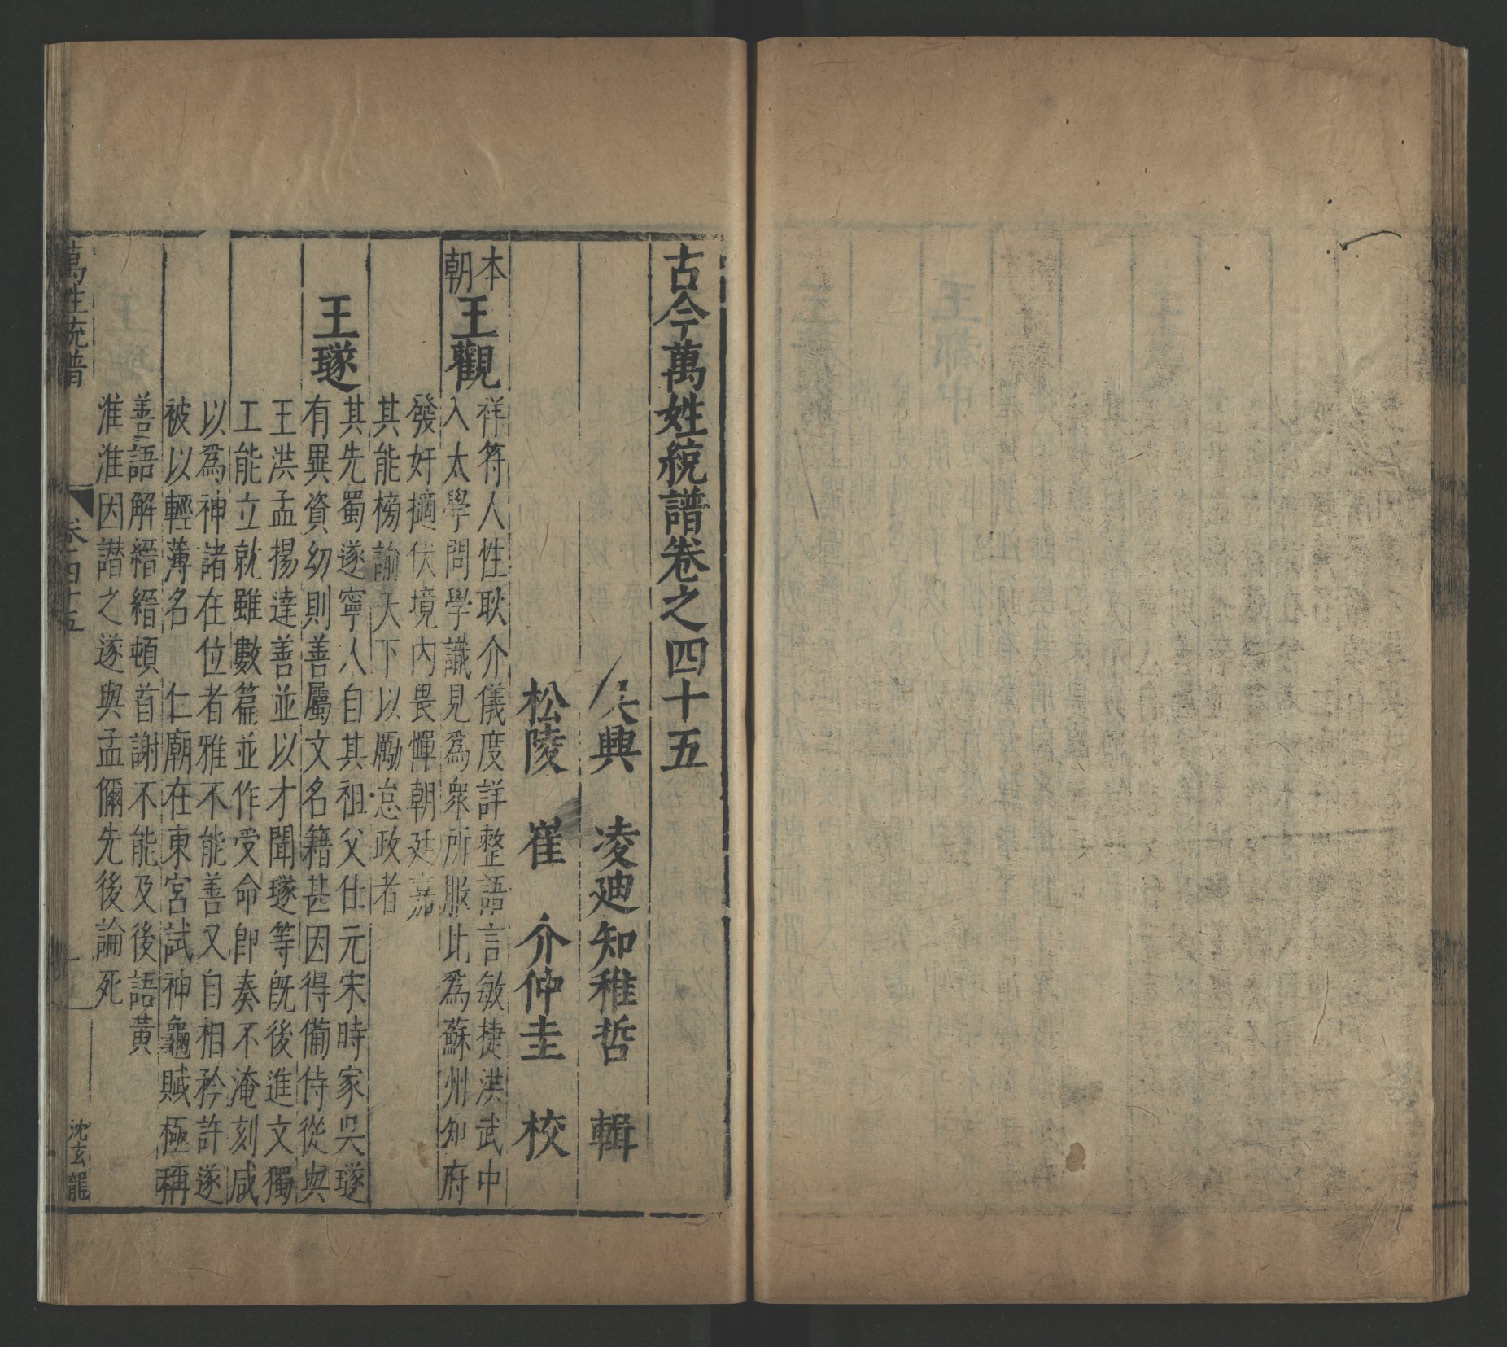 古今萬姓統譜卷之四十五
吳興　凌迪知稚哲　輯
松陵　崔　介仲圭　校
本朝
王觀
祥符人性耿介儀度詳整語言敏捷洪武中
入太學問學識見為衆所服此為蘇州知府
發奸擿伏境內畏憚朝廷嘉
其能榜諭天下以勵怠政者
王璲
其先蜀遂寧人自其祖父仕元宋時家吳璲
有異資幼則善屬文名籍甚因得備侍從與
王洪孟揚達善並以才聞璲等旣後進文獨
工能立就雖數篇並作受命即奏不淹刻咸
以爲神諸在位者雅不能善又自相矜許遂
被以輕薄名　仁廟在東宮試神龜賦極稱
善語解縉縉頓首謝不能及後語黃
淮淮因譖之遂與孟俱先後論死
萬姓統譜
卷四十五
一
沈玄龍